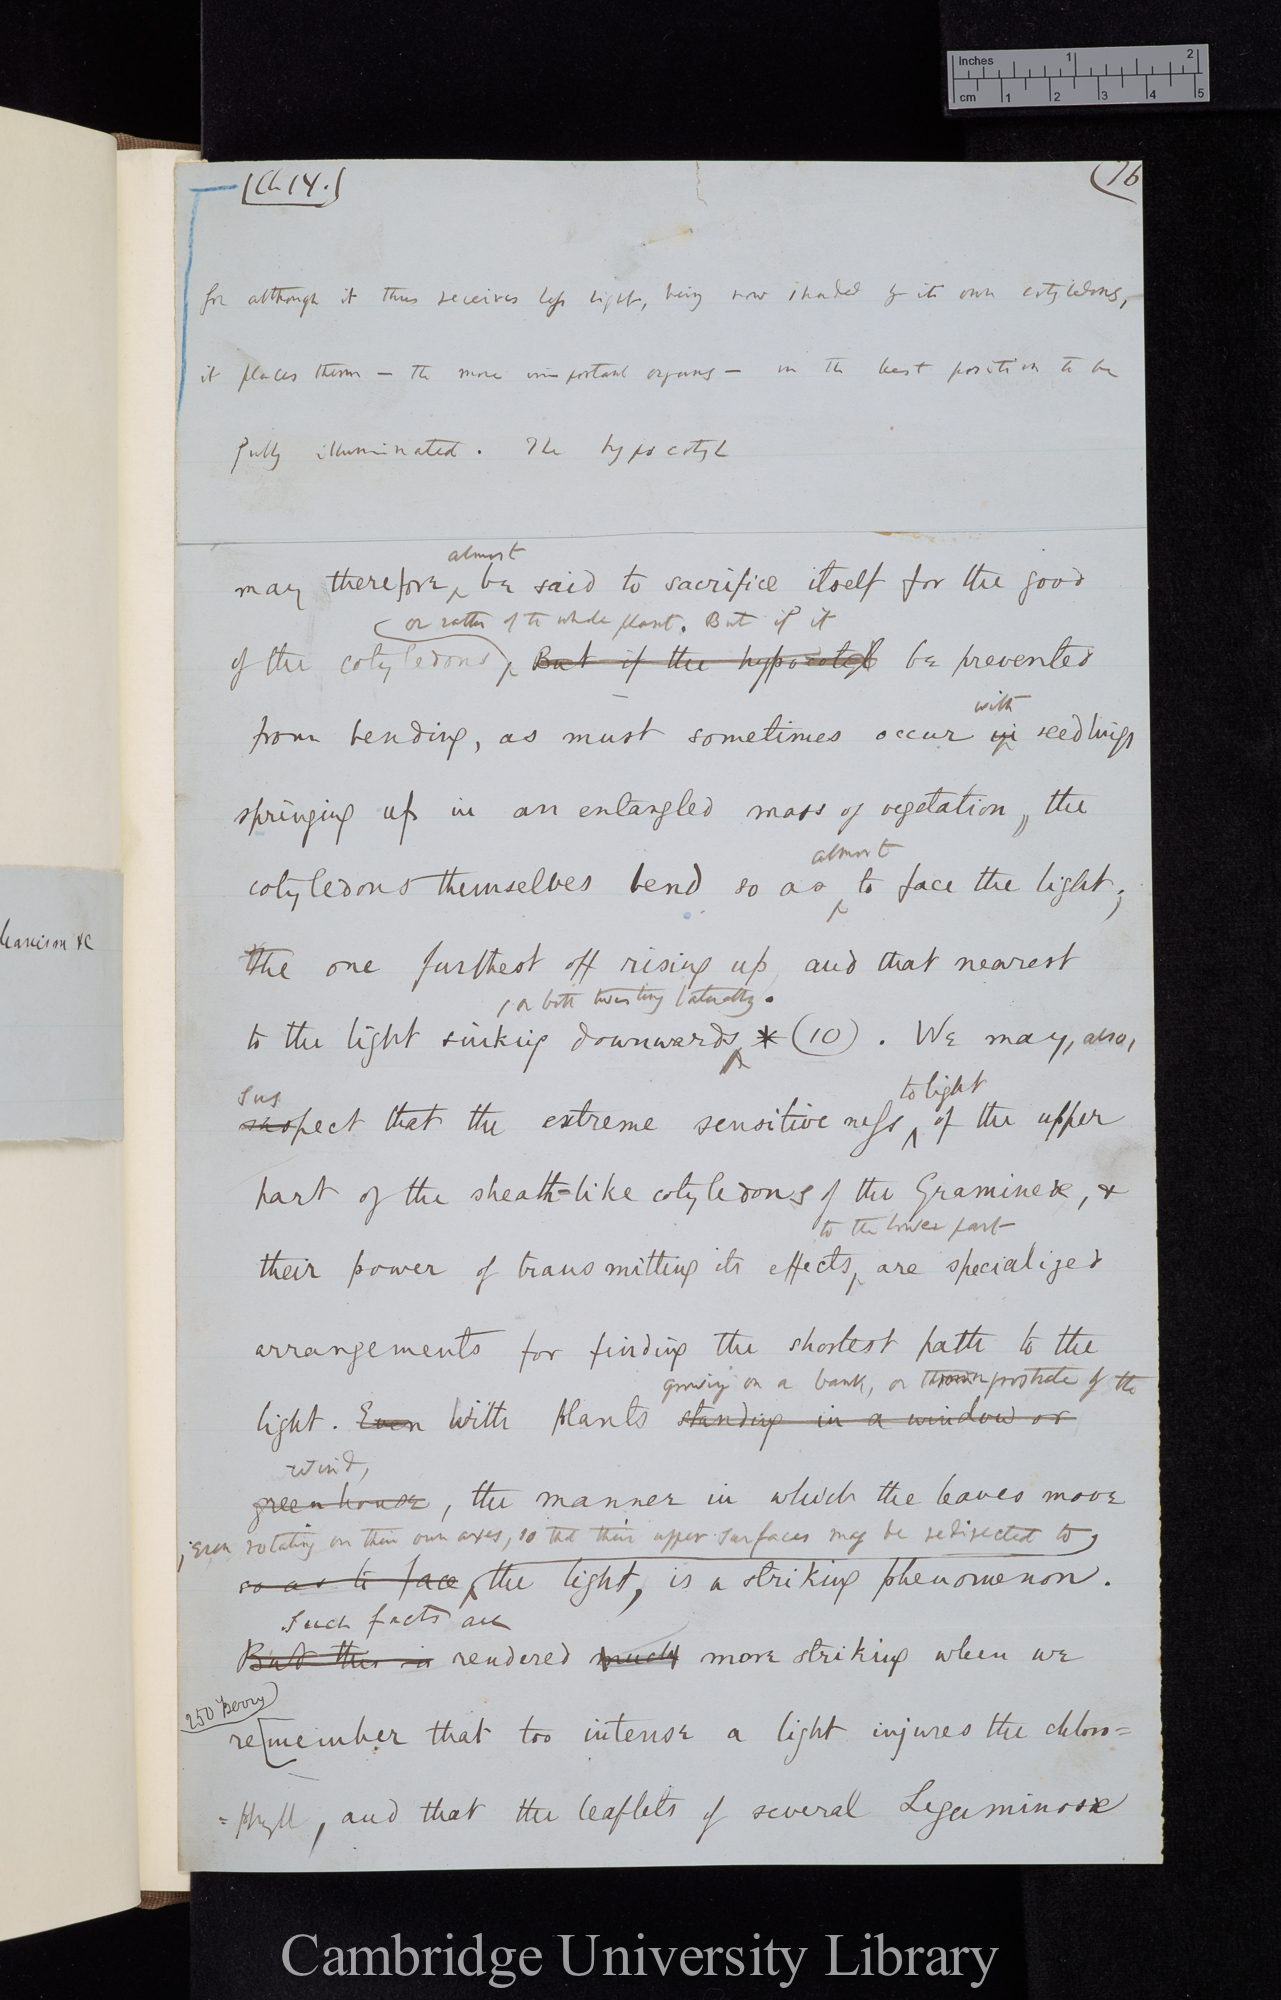 Inches 1 2
cm 1 2 3 4 5
[Ch 14.]
(76
for although it thus receives less light, being now shaded by its own cotyledons,
it places them — the more important organs — in the best position to be
fully illuminated. The hypocotyl
almost
may therefore ‸ be said to sacrifice itself for the good
or rather of the whole plant. But if it
of the cotyledons), But if the hypocotyl be prevented
with
from bending, as must sometimes occur in seedlings
springing up in an entangled mass of vegetation, the
almost
cotyledons themselves bend so as ‸ to face the light;
the one furthest off rising up, and that nearest
, or both twisting laterally.
to the light sinking downwards ‸ * (10). We may, also,
sus
suspect that the extreme sensitiveness ‸ of the upper
to light
part of the sheath-like cotyledons of the Gramineæ, &
to the lower part
their power of transmitting its effects, are specialized
arrangements for finding the shortest path to the
growing on a bank, or thrown prostrate by the
light. Even With plants standing in a window or
wind,
greenhouse, the manner in which the leaves move
; even rotating on their own axes, so that their upper surfaces may be redirected to,
so as to face ‸ the light, is a striking phenomenon.
Such facts are
But this is rendered much more striking when we
250 Perry
re[member that too intense a light injures the chloro=
=phyll, and that the leaflets of several Leguminosæ
Cambridge University Library